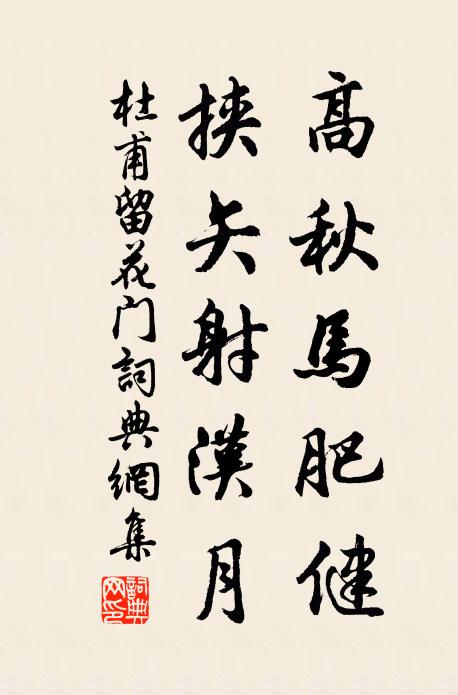 高秋馬肥健
挾矢射漢月
杜甫留花门詞典網集
詞典網印